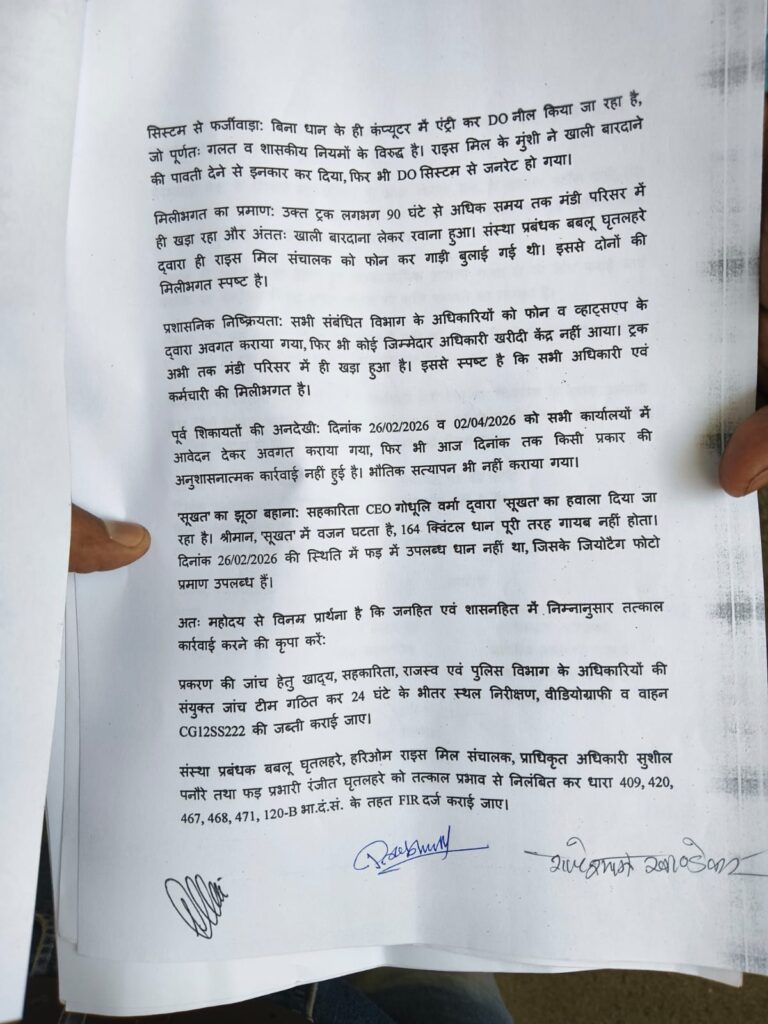 सिस्टम से फर्जीवाड़ा: बिना धान के ही कंप्यूटर में एंट्री कर DO नील किया जा रहा है,
जो पूर्णतः गलत व शासकीय नियमों के विरुद्ध है। राइस मिल के मुंशी ने खाली बारदाने
की पावती देने से इनकार कर दिया, फिर भी DO सिस्टम से जनरेट हो गया।
मिलीभगत का प्रमाण: उक्त ट्रक लगभग 90 घंटे से अधिक समय तक मंडी परिसर में
ही खड़ा रहा और अंततः खाली बारदाना लेकर रवाना हुआ। संस्था प्रबंधक बबलू घृतलहरे
द्वारा ही राइस मिल संचालक को फोन कर गाड़ी बुलाई गई थी। इससे दोनों की
मिलीभगत स्पष्ट है।
प्रशासनिक निष्क्रियता: सभी संबंधित विभाग के अधिकारियों को फोन व व्हाट्सएप के
द्वारा अवगत कराया गया, फिर भी कोई जिम्मेदार अधिकारी खरीदी केंद्र नहीं आया। ट्रक
अभी तक मंडी परिसर में ही खड़ा हुआ है। इससे स्पष्ट है कि सभी अधिकारी एवं
कर्मचारी की मिलीभगत है।
पूर्व शिकायतों की अनदेखी: दिनांक 26/02/2026 व 02/04/2026 को सभी कार्यालयों में
आवेदन देकर अवगत कराया गया, फिर भी आज दिनांक तक किसी प्रकार की
अनुशासनात्मक कार्रवाई नहीं हुई है। भौतिक सत्यापन भी नहीं कराया गया।
'सूखत' का झूठा बहाना: सहकारिता CEO गोधूलि वर्मा द्वारा 'सूखत' का हवाला दिया जा
रहा है। श्रीमान, 'सूखत' में वजन घटता है, 164 क्विंटल धान पूरी तरह गायब नहीं होता।
दिनांक 26/02/2026 की स्थिति में फड़ में उपलब्ध धान नहीं था, जिसके जियोटैग फोटो
प्रमाण उपलब्ध हैं।
अतः महोदय से विनम्र प्रार्थना है कि जनहित एवं शासनहित में निम्नानुसार तत्काल
कार्रवाई करने की कृपा करें:
प्रकरण की जांच हेतु खाद्य, सहकारिता, राजस्व एवं पुलिस विभाग के अधिकारियों की
संयुक्त जांच टीम गठित कर 24 घंटे के भीतर स्थल निरीक्षण, वीडियोग्राफी व वाहन
CG12SS222 की जब्ती कराई जाए।
संस्था प्रबंधक बबलू घृतलहरे, हरिओम राइस मिल संचालक, प्राधिकृत अधिकारी सुशील
पनौरे तथा फड़ प्रभारी रंजीत घृतलहरे को तत्काल प्रभाव से निलंबित कर धारा 409, 420,
467, 468, 471, 120-B भा.दं.सं. के तहत FIR दर्ज कराई जाए।